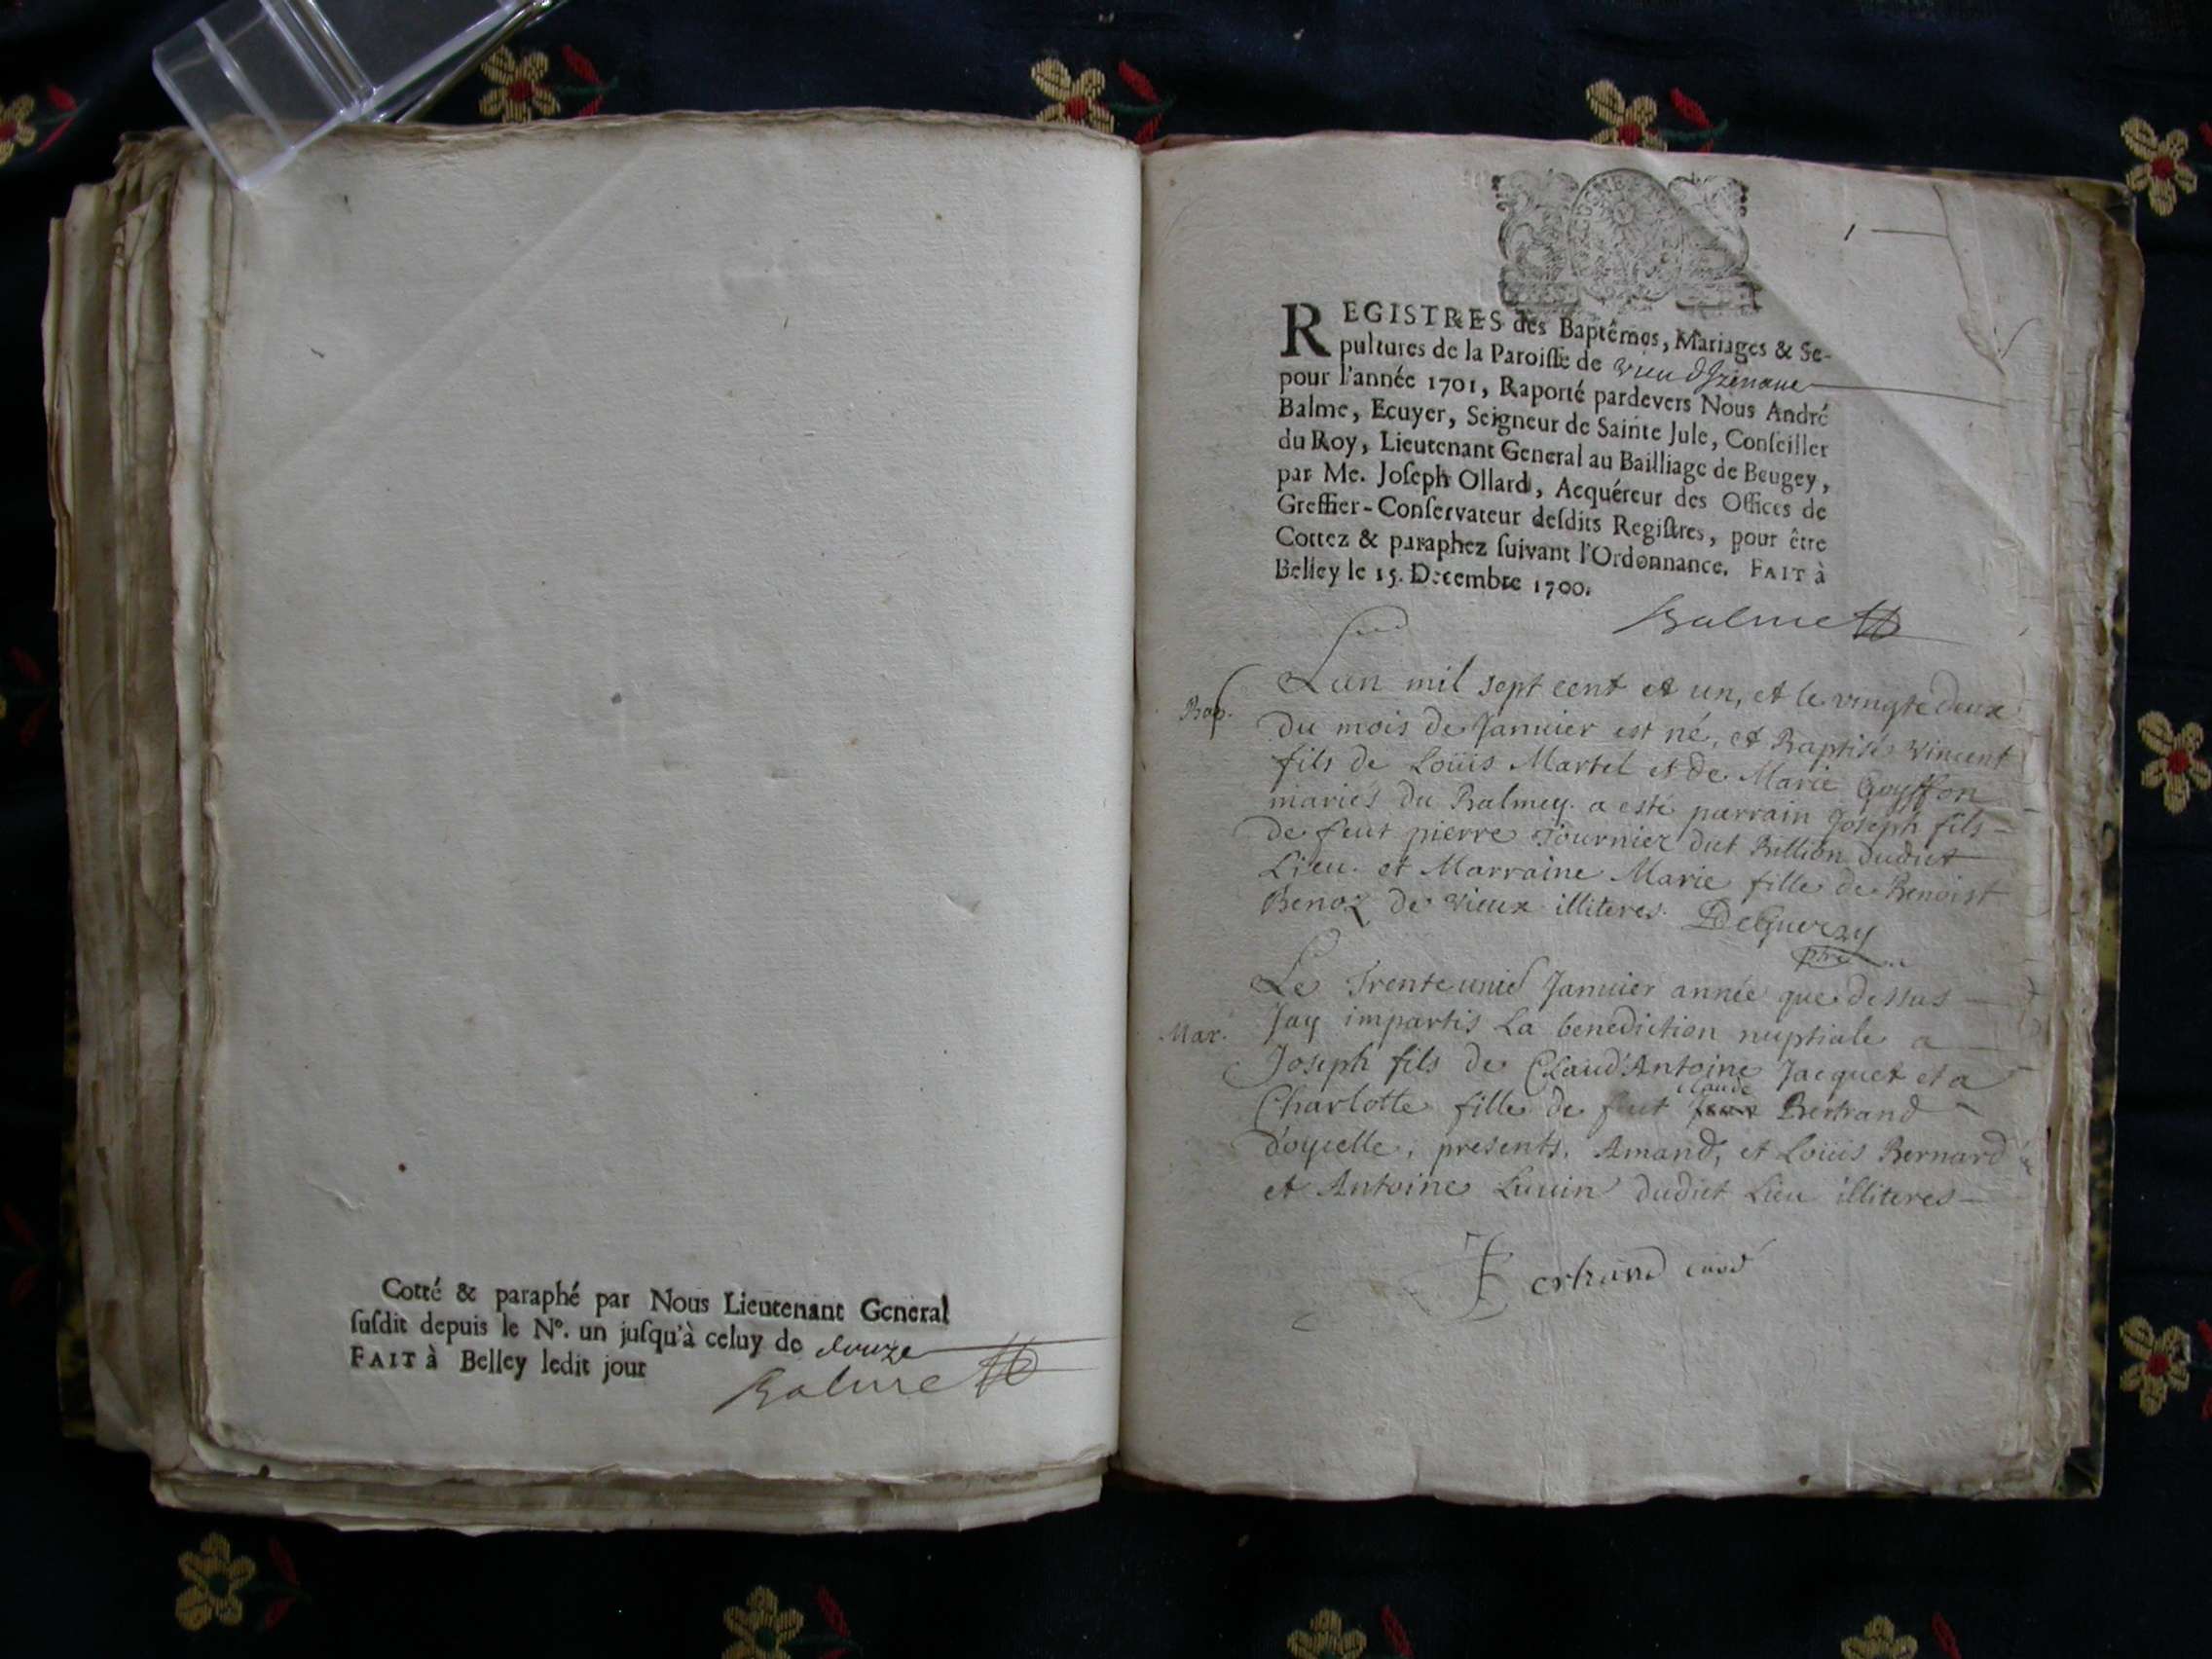 Cotté & paraphé par Nous Lieutenant General
ſuſdit depuis le Nº. un juſqu'à celuy de douze
FAIT à Belley ledit jour
Balme
1
REGISTRES des Baptêmes, Mariages & Se-
pultures de la Paroiſſe de vieu dIzenave
pour l'année 1701, Raporté pardevers Nous André
Balme, Ecuyer, Seigneur de Sainte Jule, Conſeiller
du Roy, Lieutenant General au Bailliage de Beugey,
par Me. Joſeph Ollard, Acquéreur des Offices de
Greffier-Conſervateur deſdits Regiſtres, pour être
Cottez & paraphez ſuivant l'Ordonnance. FAIT à
Belley le 15. Decembre 1700.
Balme
Bap.
Lan mil sept cent et un, et le vingte deux
du mois de Januier est né, et Baptisé vincent
fils de Loüis Martel et de Marie Goyffon
mariés du Balmey. a esté parrain Joseph fils
de feut pierre Tournier dict Billion dudict
Lieu. et Marraine Marie fille de Benoist
Benoz de vieux illiteres. DeGuerzy
ptre
Mar.
Le Trente unie Januier année que dessus
Jay impartis La benediction nuptiale a
Joseph fils de Claud'Antoine Jacquet et a
claude
Charlotte fille de feut Bertrand
d'oyselle, presents, Amand, et Loüis Bernard
et Antoine Luuin dudict Lieu illiteres
Bertrand curé